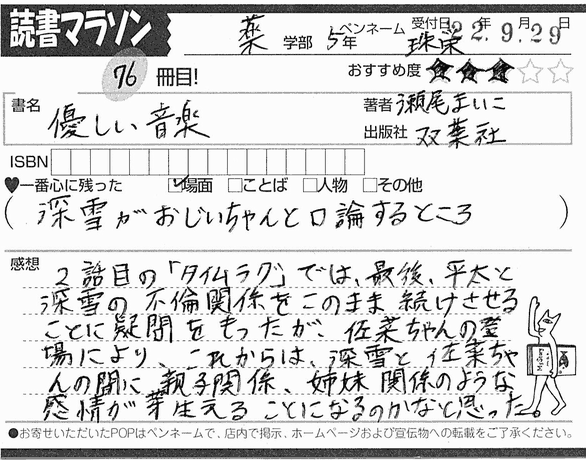 読書マラソン
薬 学部 5年 ペンネーム 珠栄 受付日 22年9月29日
76 冊目!
おすすめ度 ★★★☆☆
書名 優しい音楽
著者 瀬尾まいこ
出版社 双葉社
ISBN
♥一番心に残った ☑場面 □ことば □人物 □その他
(深雪がおじいちゃんと口論するところ)
感想
2話目の「タイムラグ」では、最後、平太と
深雪の不倫関係をこのまま続けさせる
ことに疑問をもったが、佐菜ちゃんの登
場により、これからは、深雪と佐菜ちゃ
んの間に親子関係、姉妹関係のような
感情が芽生えることになるのかなと思った。
●お寄せいただいたPOPはペンネームで、店内で掲示、ホームページおよび宣伝物への転載をご了承ください。